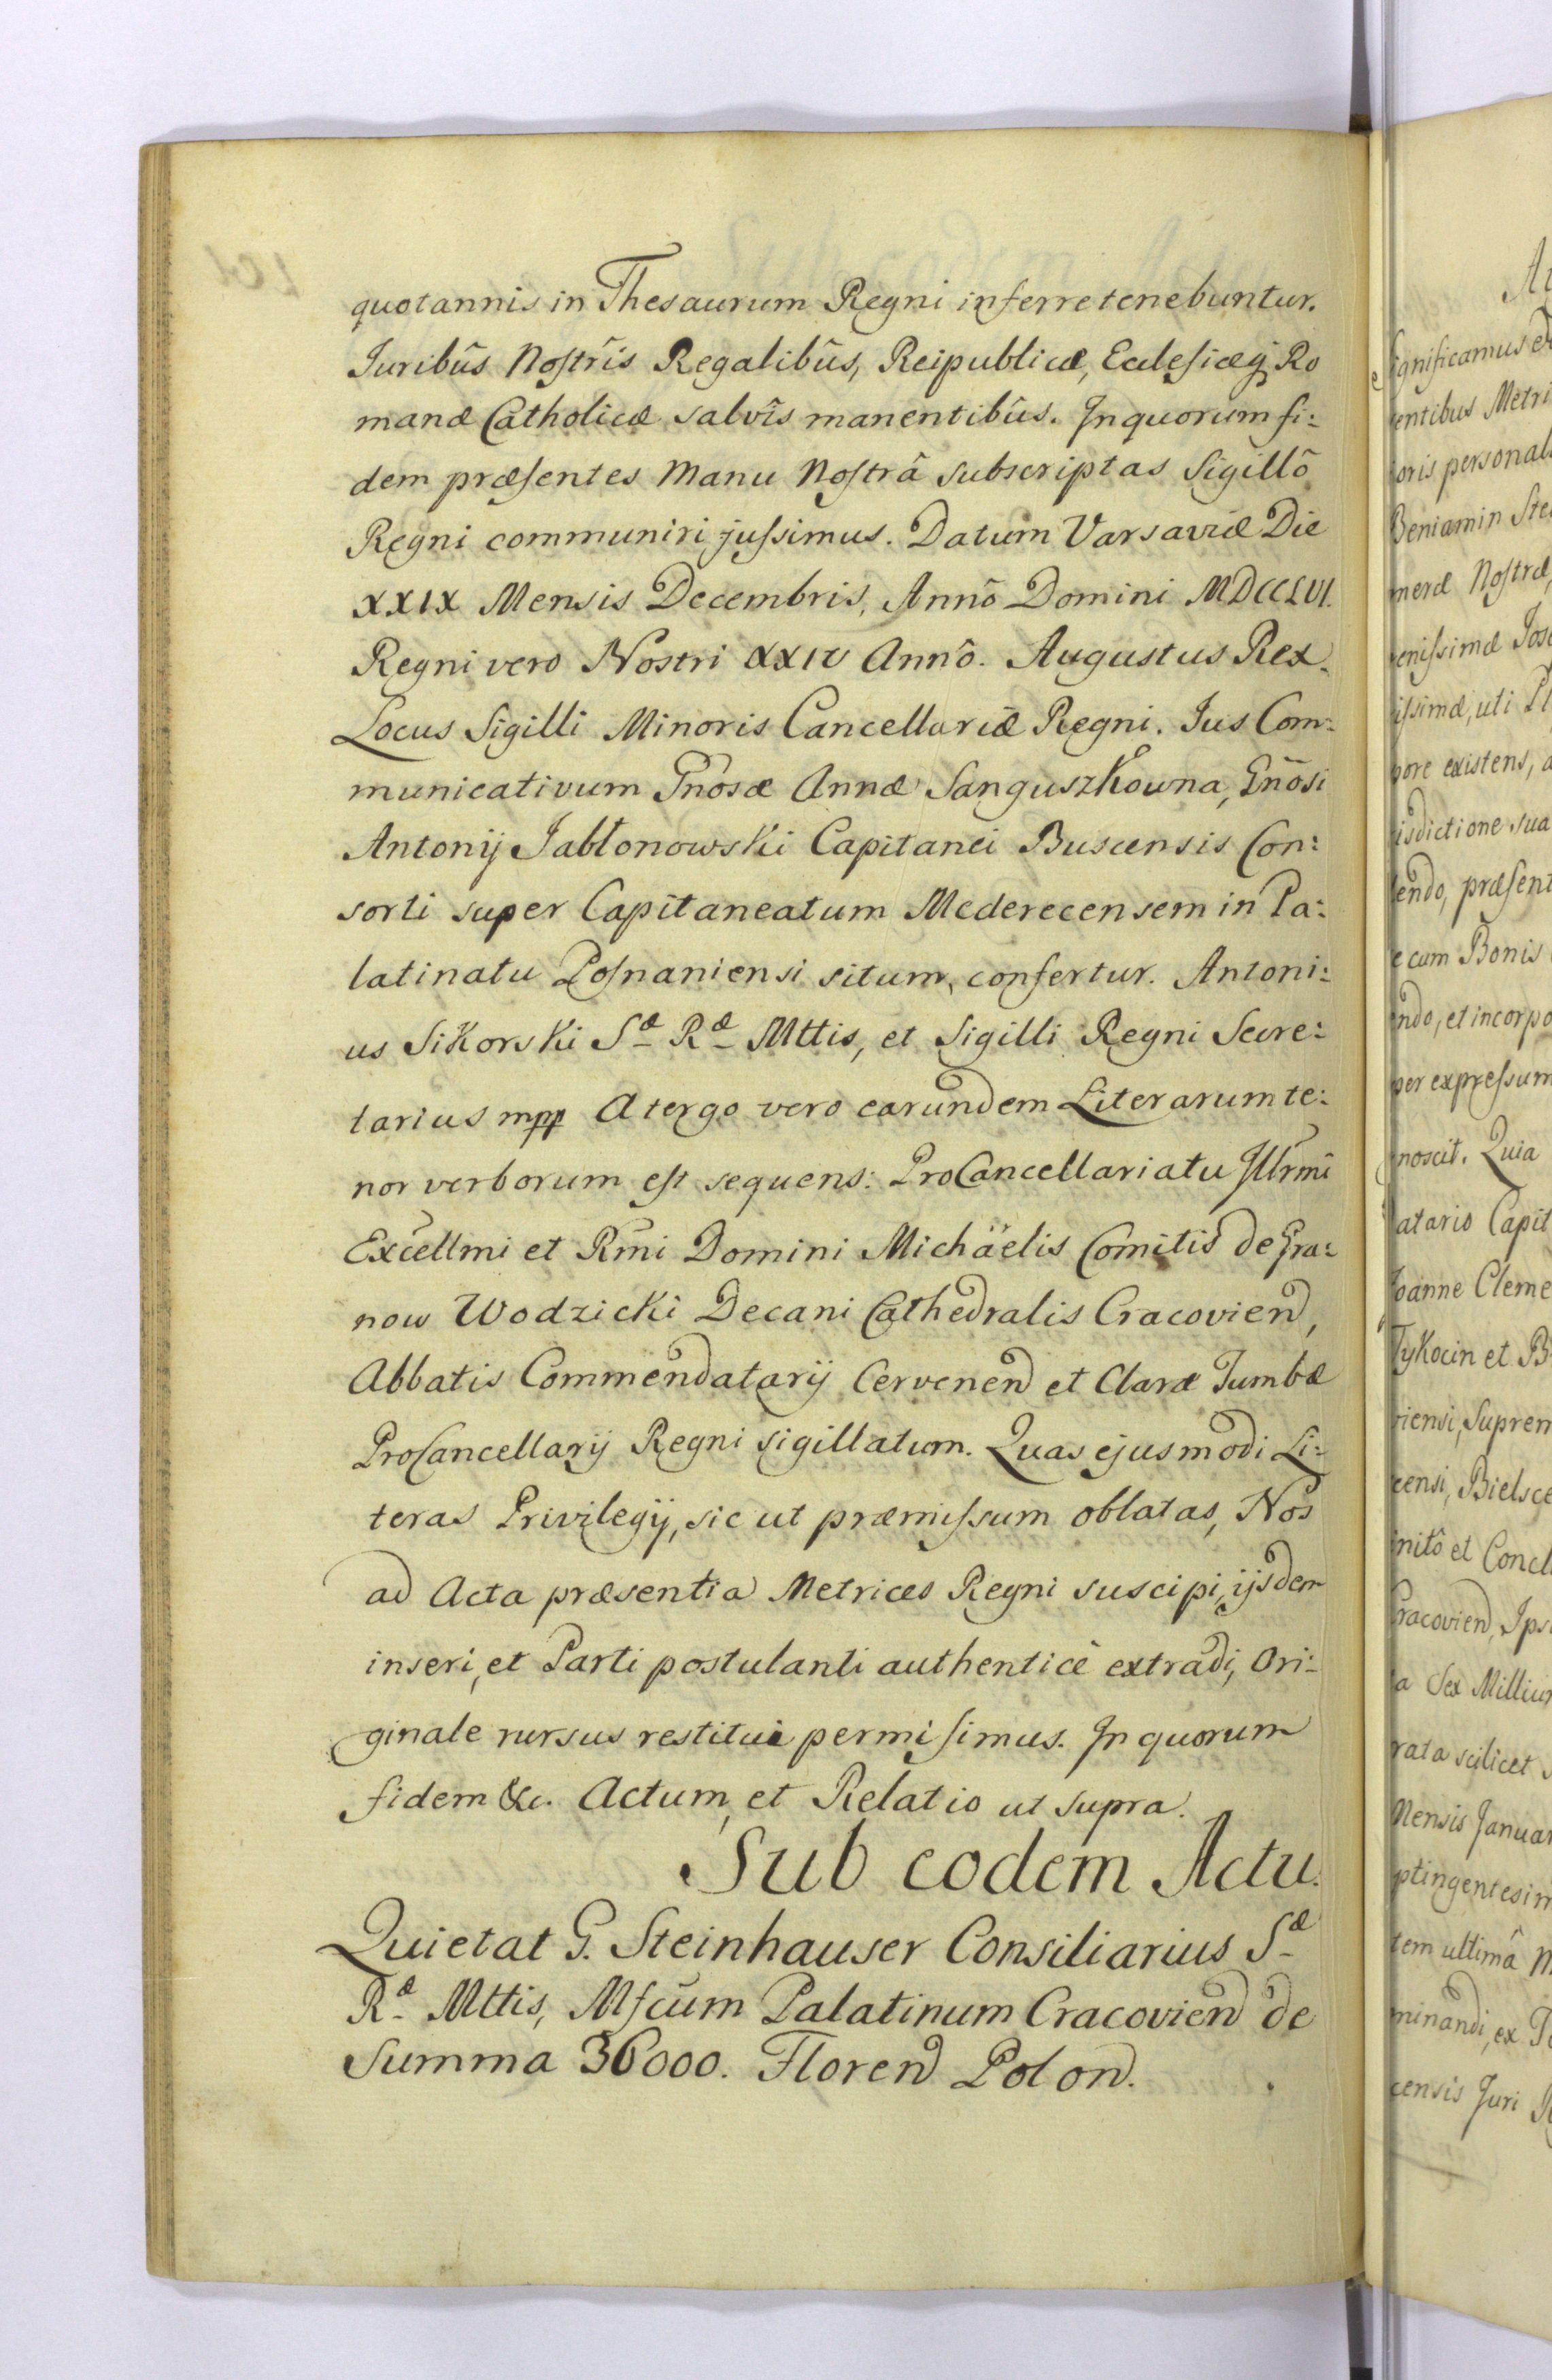 quotannis in Thesaurum Regni inferre tenebuntur.
Juribûs Nostrîs Regalibûs, Reipublicæ, Ecclesiæq; Ro
manæ Catholicæ salvîs manentibûs. In quorum fi:
dem præsentes Manu Nostrâ subscriptas Sigillô
Regni communiri jussimus. Datum Varsaviæ Die
XXIX Mensis Decembris, Annô Domini MDCCLVI.
Regni vero Nostri XXIV Annô. Augustus Rex.
Locus Sigilli Minoris Cancellariæ Regni. Jus Com:
municativum Gnosæ Annæ Sanguszkowna, Gnosi
Antonij Jabłonowski Capitanei Buscensis Con:
sorti super Capitaneatum Mederecensem in Pa:
latinatu Posnaniensi situm, confertur. Antoni:
us Sikorski Sæ Ræ Mttis, et Sigilli Regni Secre:
tarius mpp A tergo vero earundem Literarum te:
nor verborum est sequens: ProCancellariatu Illrmi
Excellmi et Rmi Domini Michäelis Comitis de Gra:
now Wodzicki Decani Cathedralis Cracovien,
Abbatis Commendatarij Cervenen et Claræ Tumbæ
ProCancellarij Regni sigillatum. Quas ejusmodi Li:
teras Privilegij, sic ut præmissum oblatas, Nos
ad Acta præsentia Metrices Regni suscipi, ijsdem
inseri, et Parti postulanti authenticè extradi, Ori:
ginale rursus restitui permisimus. In quorum
fidem &c. Actum, et Relatio ut supra.
Sub eodem Actu.
Quietat G. Steinhauser Consiliarius Sæ
Ræ Mttis, Mfcum Palatinum Cracovien de
Summa 36000. Floren Polon.
Significamus
entibus Metri
oris personal
Beniamin Ste
meræ Nostræ,
enissimæ Jos
issimæ, uti Pl
pore existens, a
isdictione sua
endo, præsent
e cum Bonis
ndo, et incorpo
per expressum
noscit. Quia
latario Capit
Joanne Cleme
Tykocin et B
viensi, Suprem
censi, Bielsce
initô et Concl
Cracovien, Ips
a Sex Milliu
rata scilicet
Mensis Januar
ptingentesim
tem ultimâ M
minandi, ex
censis Juri